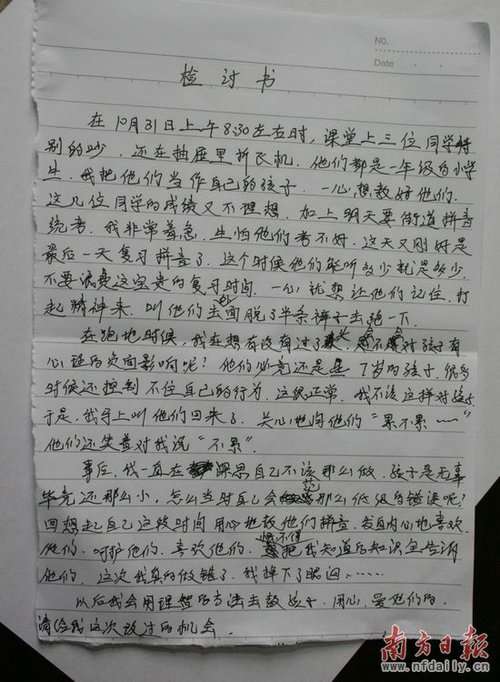 No.
Date
检讨书
在10月31日上午8:30左右时，课堂上三位同学特
别的吵，还在抽屉里折飞机，他们都是一年级的小学
生，我把他们当作自己的孩子，一心想教好他们，
这几位同学的成绩又不理想，加上明天要街道拼音
统考，我非常着急，生怕他们考不好，这天又刚好是
最后一天复习拼音了，这个时候他们能听多少就是多少，
不要浪费这宝贵的复习时间，一心就想让他们记住，打
起精神来，叫他们去外面脱了半条裤子去跑一下。
在跑的时候，我在想有没有过了头，会不会对孩子有
心理的负面影响呢？他们必竟还是7岁的孩子，很多
时候还控制不住自己的行为，这很正常，我不该这样对孩子
于是，我马上叫他们回来了，关心地问他们“累不累……”
他们还笑着对我说“不累”。
事后，我一直在深思自己不该那么做，孩子是无辜
毕竟还那么小，怎么当时自己会犯那么低级的错误呢？
回想起自己这段时间用心地教他们拼音，发自内心地喜欢
他们，呵护他们，喜欢他们，恨不得把我知道的知识全告诉
他们，这次我真的做错了，我掉下了眼泪……
以后我会用理智的方法去教孩子，用心，爱他们的，
请给我这次改过的机会。
南方日报
www.nfdaily.cn